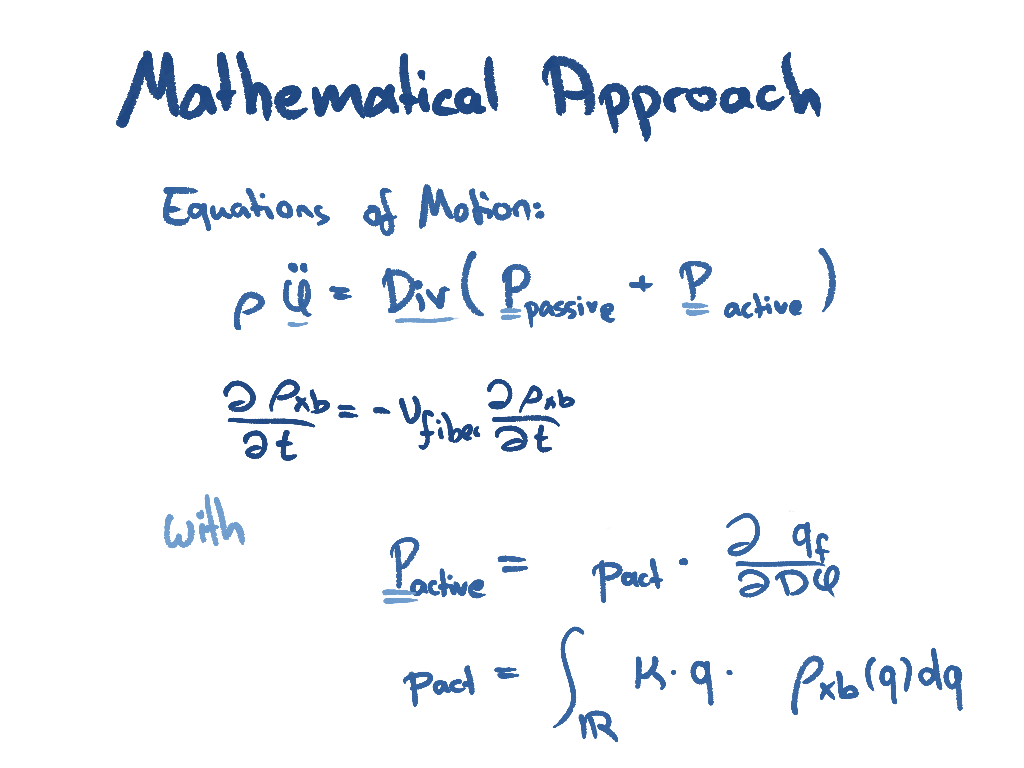 Mathematical Approach
Equations of Motion:
ρ φ̈ = Div ( P_passive + P_active )
∂ρ_xb/∂t = -υ_fiber ∂ρ_xb/∂t
with
P_active = p_act · ∂q_f/∂Dφ
p_act = ∫_ℝ K · q · ρ_xb(q)dq